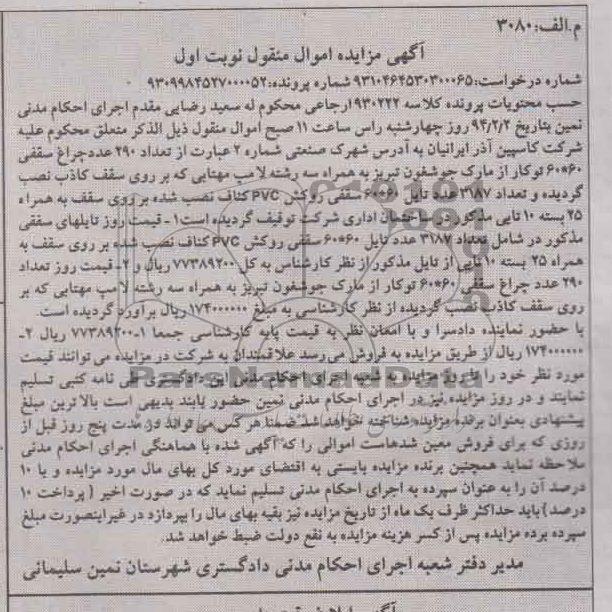 م.الف:۳۰۸۰
آگهی مزایده اموال منقول نوبت اول
شماره درخواست:۹۳۱۰۴۶۴۵۳۰۳۰۰۰۶۵ شماره پرونده:۹۳۰۹۹۸۴۵۲۷۰۰۰۰۵۲
حسب محتویات پرونده کلاسه ۹۳۰۲۲۲ ارجاعی محکوم له سعید رضایی مقدم اجرای احکام مدنی
نمین بتاریخ ۹۴/۲/۲ روز چهارشنبه راس ساعت ۱۱ صبح اموال منقول ذیل الذکر متعلق محکوم علیه
شرکت کاسپین آذر ایرانیان به آدرس شهرک صنعتی شماره ۲ عبارت از تعداد ۲۹۰ عددچراغ سقفی
۶۰*۶۰ توکار از مارک جوشغون تبریز به همراه سه رشته لامپ مهتابی که بر روی سقف کاذب نصب
گردیده و تعداد ۳۱۸۷ عدد تایل ۶۰*۶۰ سقفی روکش PVC کناف نصب شده بر روی سقف به همراه
۲۵ بسته ۱۰ تایی مذکور در ساختمان اداری شرکت توقیف گردیده است ۱- قیمت روز تایلهای سقفی
مذکور در شامل تعداد ۳۱۸۷ عدد تایل ۶۰*۶۰ سقفی روکش PVC کناف نصب شده بر روی سقف به
همراه ۲۵ بسته ۱۰ تایی از تایل مذکور از نظر کارشناس به کل ۷۷۳۸۹۲۰۰ ریال و ۲- قیمت روز تعداد
۲۹۰ عدد چراغ سقفی ۶۰*۶۰ توکار از مارک جوشغون تبریز به همراه سه رشته لامپ مهتابی که بر
روی سقف کاذب نصب گردیده از نظر کارشناسی به مبلغ ۱۷۴۰۰۰۰۰۰ ریال برآورد گردیده است.
با حضور نماینده دادسرا و با امعان نظر به قیمت پایه کارشناسی جمعا ۱-۷۷۳۸۹۲۰۰ ریال ۲-
۱۷۴۰۰۰۰۰۰ ریال از طریق مزایده به فروش می رسد علاقمندان به شرکت در مزایده می توانند قیمت
مورد نظر خود را تا روز مزایده به شعبه اجرای احکام مدنی این دادگستری طی نامه کتبی تسلیم
نمایند و در روز مزایده نیز در اجرای احکام مدنی نمین حضور یابند بدیهی است بالاترین مبلغ
پیشنهادی بعنوان برنده مزایده شناخته خواهد شد ضمنا هر کس می تواند در مدت پنج روز قبل از
روزی که برای فروش معین شدهاست اموالی را که آگهی شده با هماهنگی اجرای احکام مدنی
ملاحظه نماید همچنین برنده مزایده بایستی به اقتضای مورد کل بهای مال مورد مزایده و یا ۱۰
درصد آن را به عنوان سپرده به اجرای احکام مدنی تسلیم نماید که در صورت اخیر ( پرداخت ۱۰
درصد) باید حداکثر ظرف یک ماه از تاریخ مزایده نیز بقیه بهای مال را بپردازد در غیراینصورت مبلغ
سپرده برده مزایده پس از کسر هزینه مزایده به نفع دولت ضبط خواهد شد.
مدیر دفتر شعبه اجرای احکام مدنی دادگستری شهرستان نمین سلیمانی
ParsNamadData